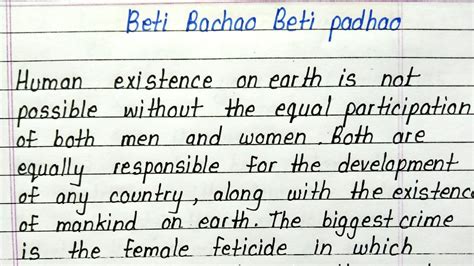 Beti Bachao Beti padhao
Human existence on earth is not
possible without the equal participation
of both men and women. Both are
equally responsible for the development
of any country, along with the existence
of mankind on earth. The biggest crime
is the female feticide in which